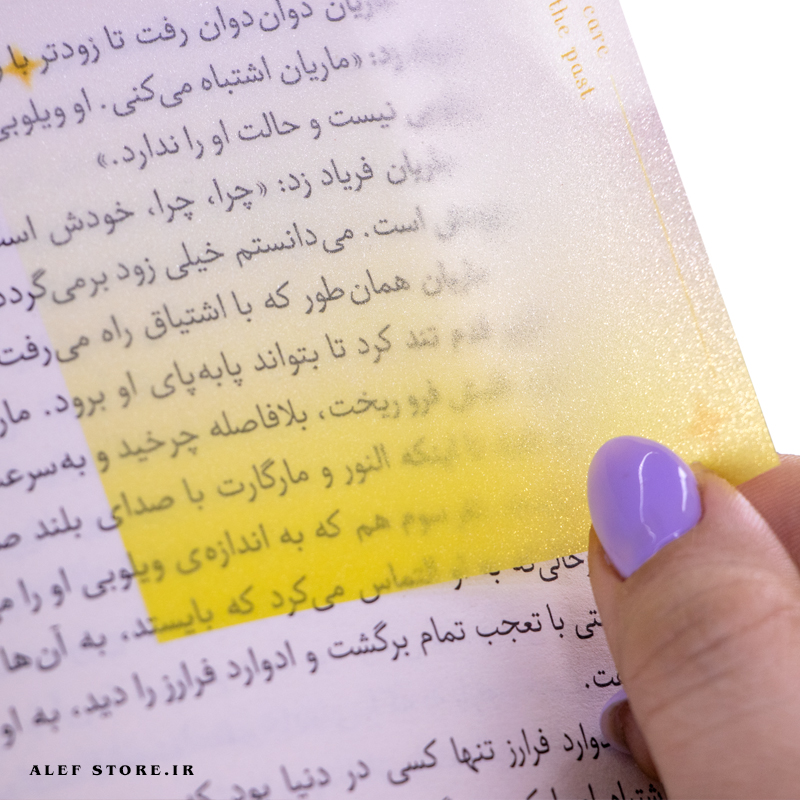 care
the past
دوان‌دوان رفت تا زودتر با
«ماریان اشتباه می‌کنی. او ویلوبی
نیست و حالت او را ندارد.»
ماریان فریاد زد: «چرا، چرا، خودش است
است. می‌دانستم خیلی زود برمی‌گردد
ماریان همان‌طور که با اشتیاق راه می‌رفت
قدم تند کرد تا بتواند پابه‌پای او برود. مار
فرو ریخت، بلافاصله چرخید و به‌سرعت
اینکه النور و مارگارت با صدای بلند
سوم هم که به اندازه‌ی ویلوبی او را
التماس می‌کرد که بایستد، به آن‌ها
با تعجب تمام برگشت و ادوارد فرارز را دید، به او
ادوارد فرارز تنها کسی در دنیا بود که
ALEF STORE.IR